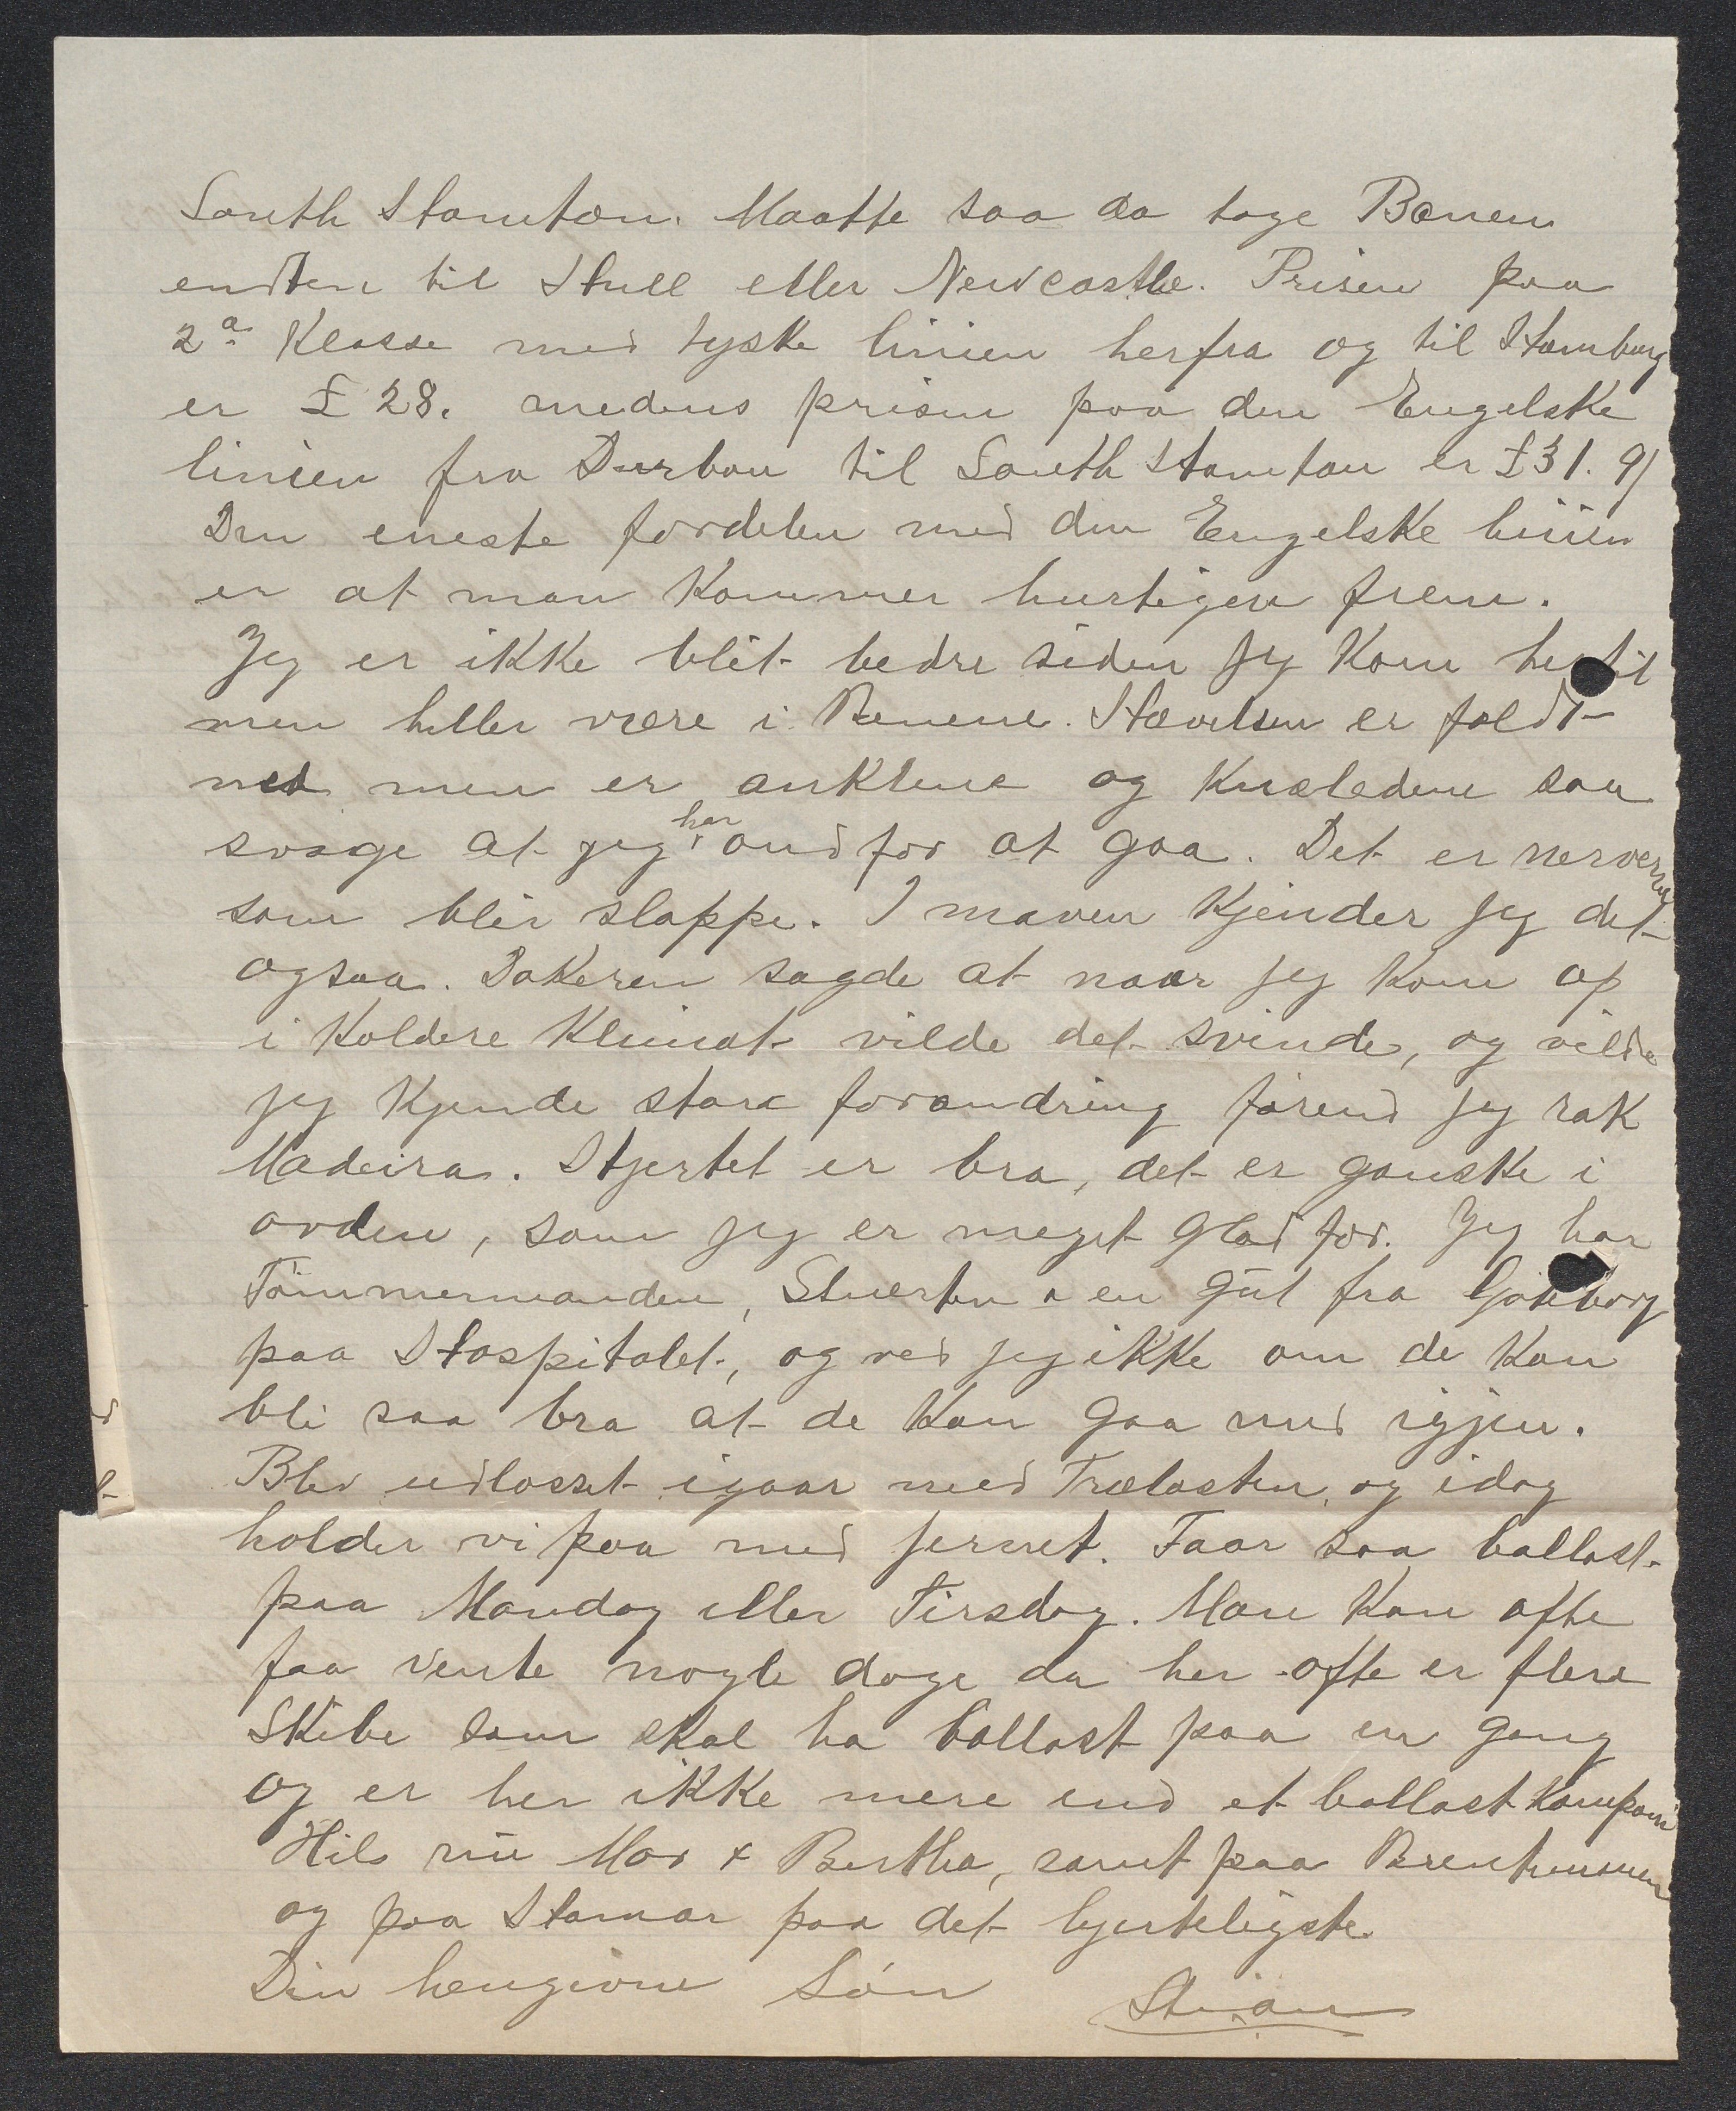 South Hamton. Maatte saa da tage Banen
endten til Hull eller Newcastle. Prisen paa
2a Klasse med tyske linien herfra og til Hamburg
er £ 28. medens prisen paa den Engelske
linien fra Durban til South Hamton er £31.9/
Den eneste fordelen med den Engelske linien
er at man Kommer hurtigere frem.
Jeg er ikke blit bedre siden jeg Kom hertil
men heller være i Benene. Hævelsen er faldt
ned men er anklene og Knæledene saa
svage at jeg har ondt for at gaa. Det er nerverne
som blir slappe. I maven Kjender jeg det
ogsaa. Dokeren sagde at naar jeg Kom op
i Koldere Klimat vilde det svinde, og vilde
jeg Kjende stora forandring førend jeg rak
Madeira. Hjertet er bra, det er ganske i
orden, som jeg er meget glad for. Jeg har
Tømmermanden, Stuerten & en gut fra Gøteborg
paa Hospitalet, og ved jeg ikke om de Kan
bli saa bra at de Kan gaa med igjen.
Blev udlosset igaar med Trælasten, og idag
holder vi paa med jernet. Faar saa ballast
paa Mandag eller Tirsdag. Man Kan ofte
faa vente nogle dage da her ofte er flere
Skibe som skal ha ballast paa en gang
og er her ikke mere end et ballast Kompani
Hils nu Mor & Bertha, samt paa
og paa Hamar paa det hjerteligste.
Din hengivne Søn Stian